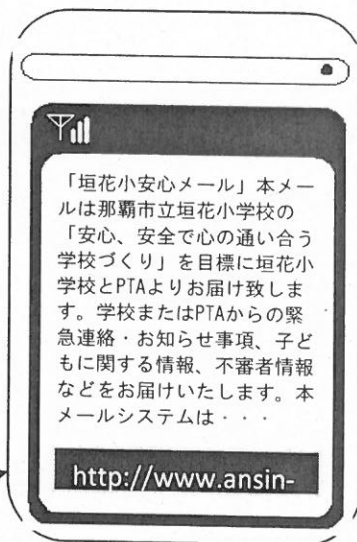 「垣花小安心メール」本メー
ルは那覇市立垣花小学校の
「安心、安全で心の通い合う
学校づくり」を目標に垣花小
学校とPTAよりお届け致しま
す。学校またはPTAからの緊
急連絡・お知らせ事項、子ど
もに関する情報、不審者情報
などをお届けいたします。本
メールシステムは・・・
http://www.ansin-